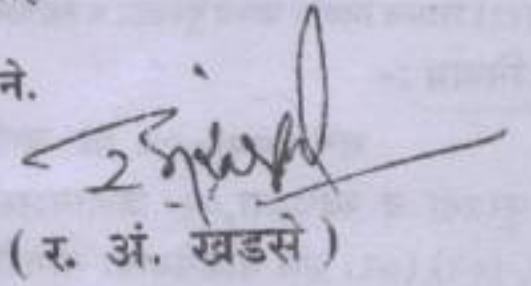 ने.
( र. अं. खडसे )